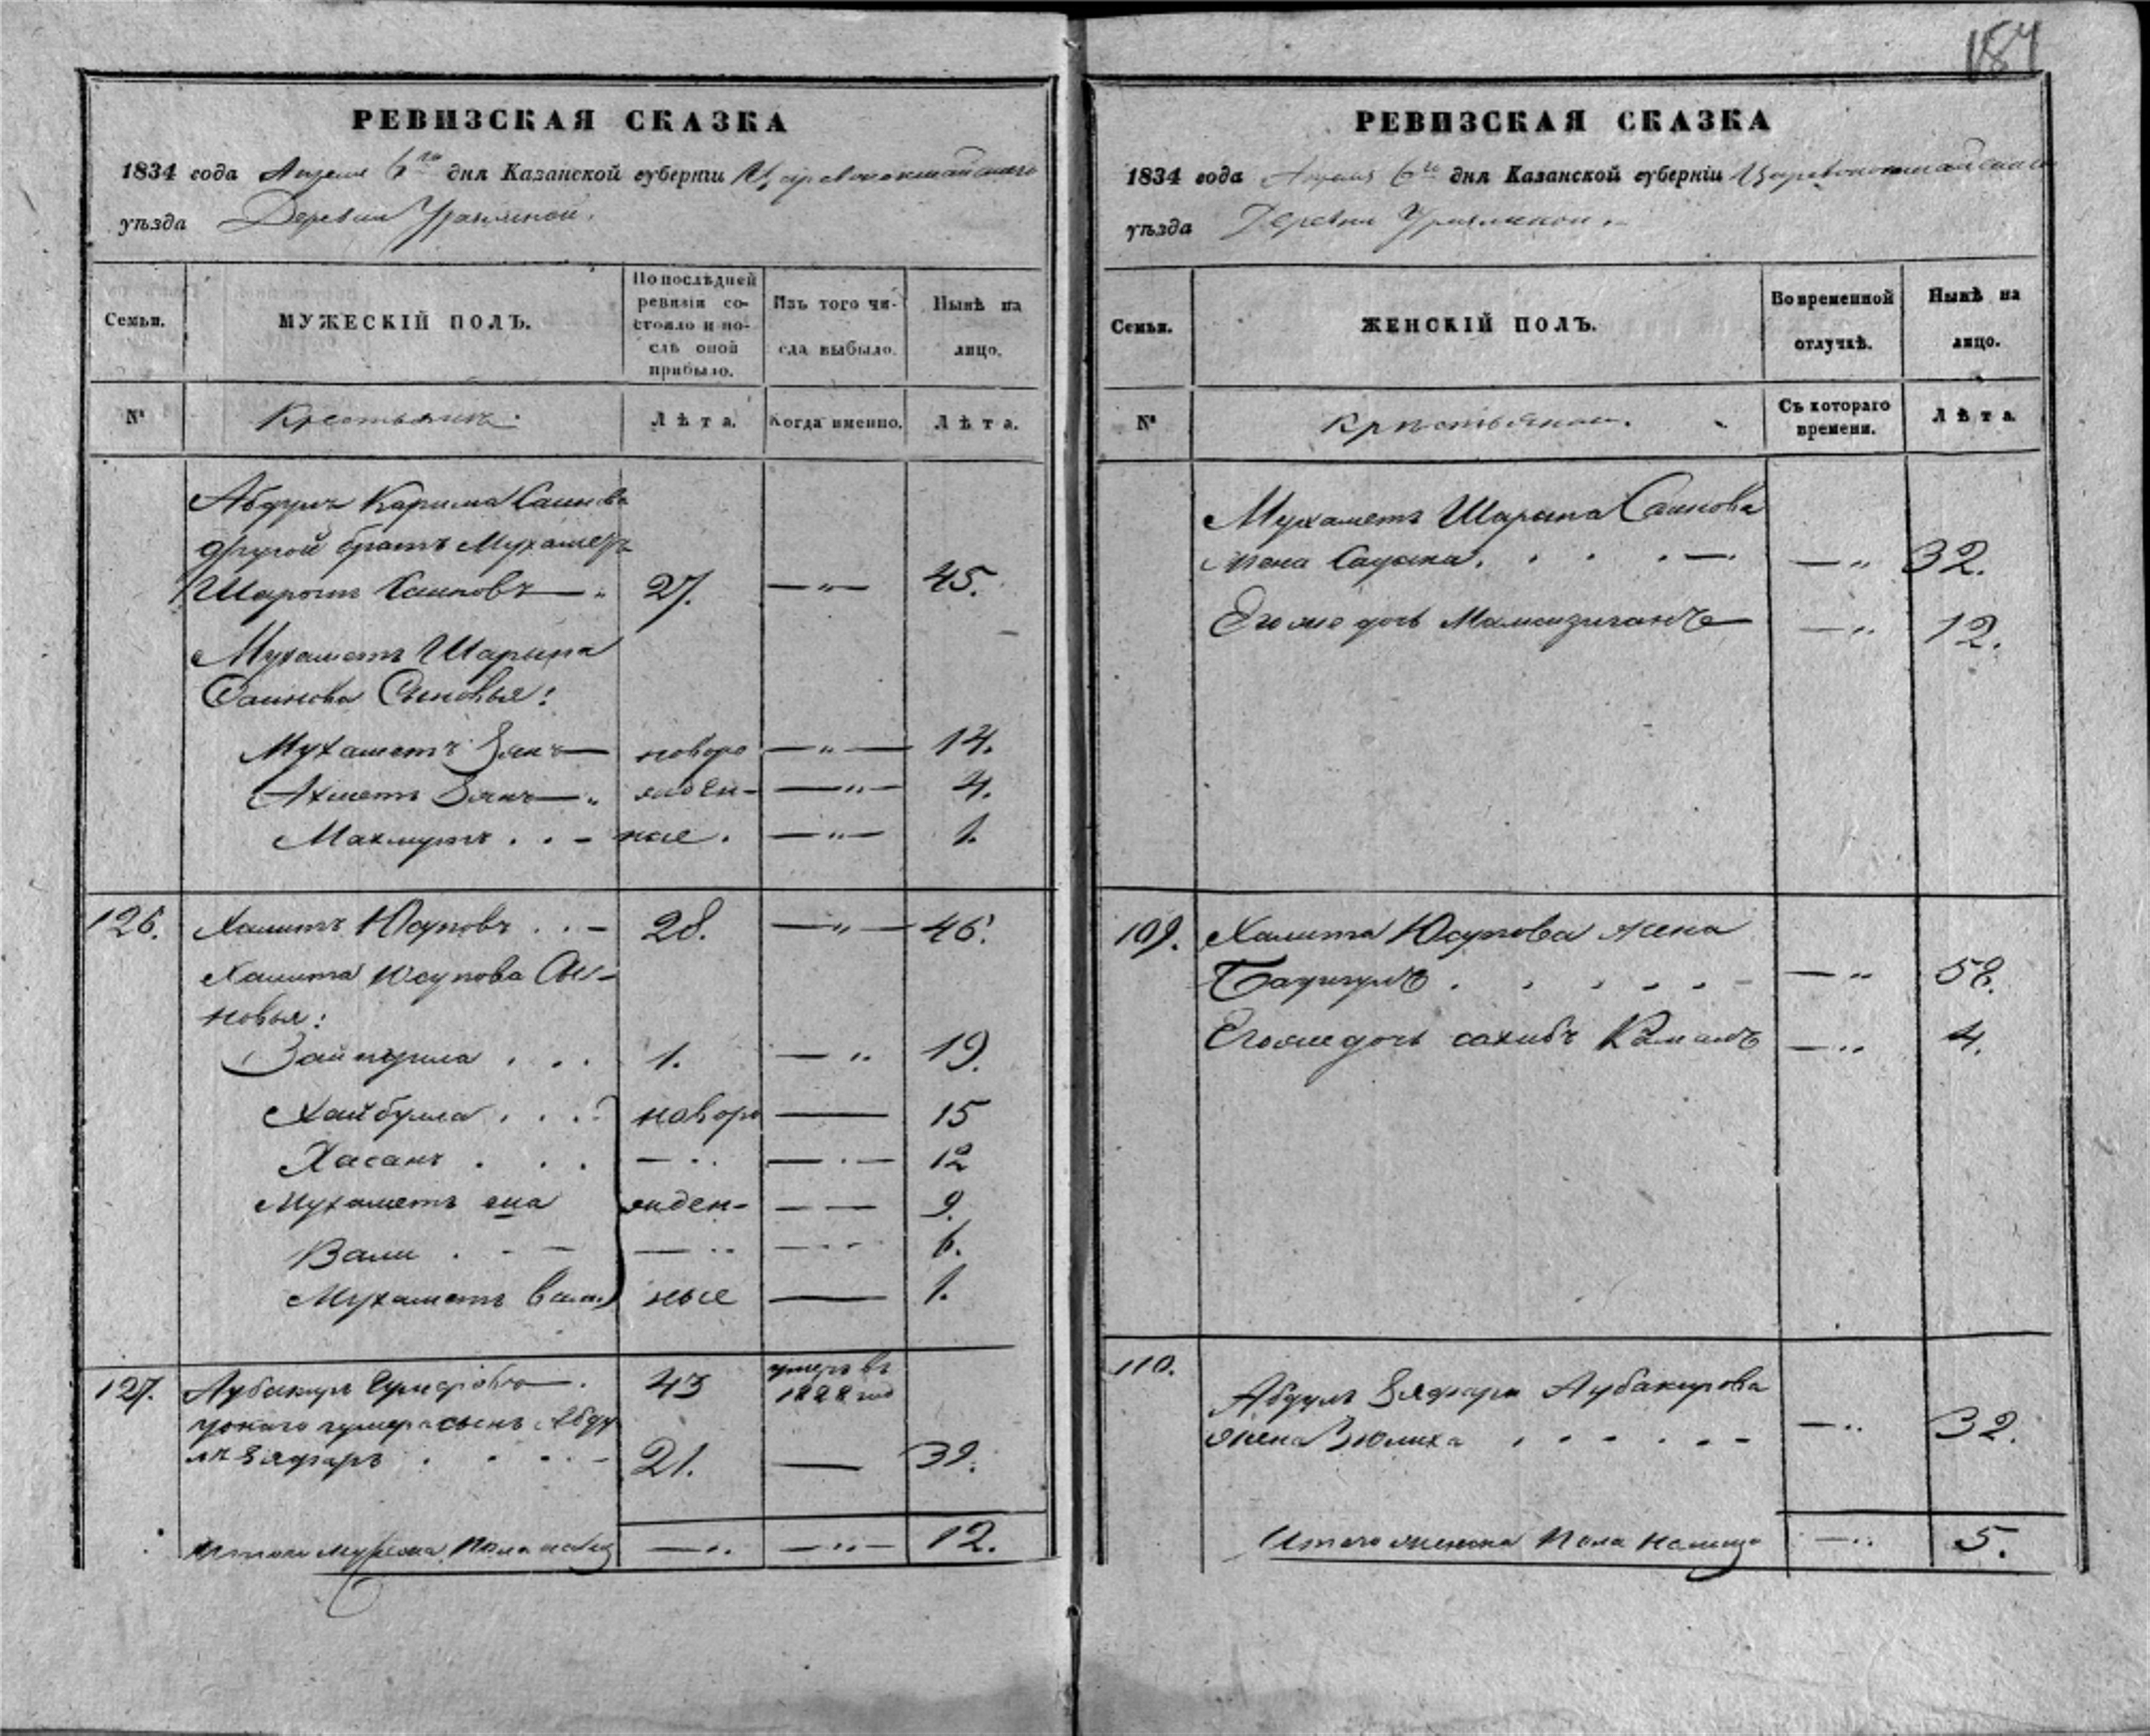 184
РЕВИЗСКАЯ СКАЗКА
1834 года Апреля 6го дня Казанской губернiи Царевококшайскаго
уѣзда Деревни
Семьи.
МУЖЕСКIЙ ПОЛЪ.
По послѣдней ревизiи состояло и послѣ оной прибыло.
Изъ того числа выбыло.
Нынѣ на лицо.
№
Крестьянъ.
Лѣта.
Когда именно.
Лѣта.
Абдулъ Карима Саинова
другой братъ Мухаметъ
Шарыпъ Саиновъ — „ 27. — „ — 45.
Мухаметъ Шарыпа
Саинова Сыновья:
Мухаметъ Зянъ — новоро — „ — 14.
Ахметъ Зянъ — „ жден- — „ — 4.
Махмутъ . . – ные . — „ — 1.
126. Халитъ Юсуповъ . . – 28. — „ — 46.
Халита Юсупова Сы-
новья:
. . . 1. — „ 19.
Хайбулла . . . новоро — 15
Хасанъ . . . — .. — . — 12
Мухаметъ жден- — — 9.
Вали . - — — .. — 6.
Мухаметъ ные — 1.
127. Аубакиръ 43 умеръ въ 1828 год
сынъ Абду
лъ Зяфаръ . . . . – 21. — 39.
Итого Мужеска Пола налицо — .. — .. — 12.
РЕВИЗСКАЯ СКАЗКА
1834 года Апреля 6го дня Казанской губернiи Царевококшайскаго
уѣзда Деревни
Семьи.
ЖЕНСКIЙ ПОЛЪ.
Во временной отлучкѣ.
Нынѣ на лицо.
№
Крестьянки.
Съ котораго времени.
Лѣта.
Мухаметъ Шарыпа Саинова
жена . . . — — „ 32.
Его же дочь — — „ 12.
109. Халита Юсупова жена
. . . . . – — „ 58.
Его же дочь сахибъ Камалъ — .. 4.
110.
Абдулъ Зяфара Аубакирова
жена Зюлиха . . . . . – — .. 32.
Итого женска Пола налицо — .. 5.